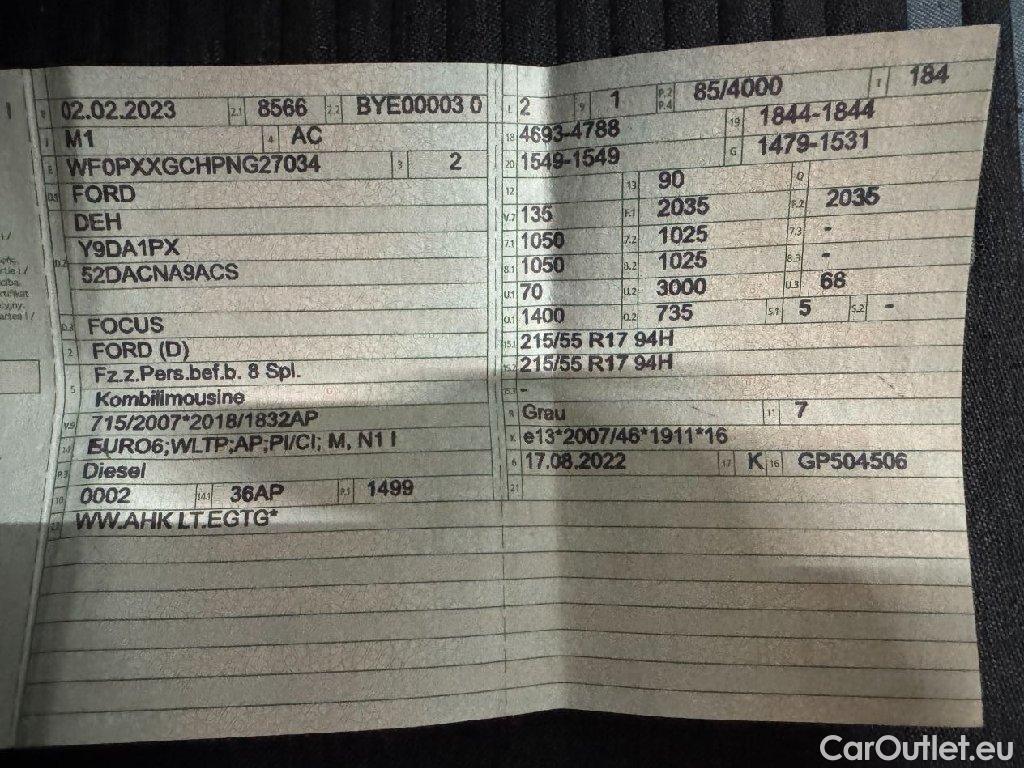 B 02.02.2023 2.1 8566 2.2 BYE00003 0
J M1 4 AC
E WF0PXXGCHPNG27034 3 2
D.1 FORD
DEH
D.2 Y9DA1PX
52DACNA9ACS
D.3 FOCUS
2 FORD (D)
Fz.z.Pers.bef.b. 8 Spl.
5 Kombilimousine
V.9 715/2007*2018/1832AP
EURO6;WLTP;AP;PI/CI; M, N1 I
P.3 Diesel
10 0002 14.1 36AP P.1 1499
WW.AHK LT.EGTG*
L 2 9 1 P.2 P.4 85/4000 T 184
18 4693-4788 19 1844-1844
20 1549-1549 G 1479-1531
12 13 90 Q
V.7 135 F.1 2035 F.2 2035
7.1 1050 7.2 1025 7.3 -
8.1 1050 8.2 1025 8.3 -
U.1 70 U.2 3000 U.3 68
O.1 1400 O.2 735 S.1 5 S.2 -
15.1 215/55 R17 94H
15.2 215/55 R17 94H
15.3 -
R Grau 11 7
K e13*2007/46*1911*16
6 17.08.2022 17 K 16 GP504506
21
CarOutlet.eu